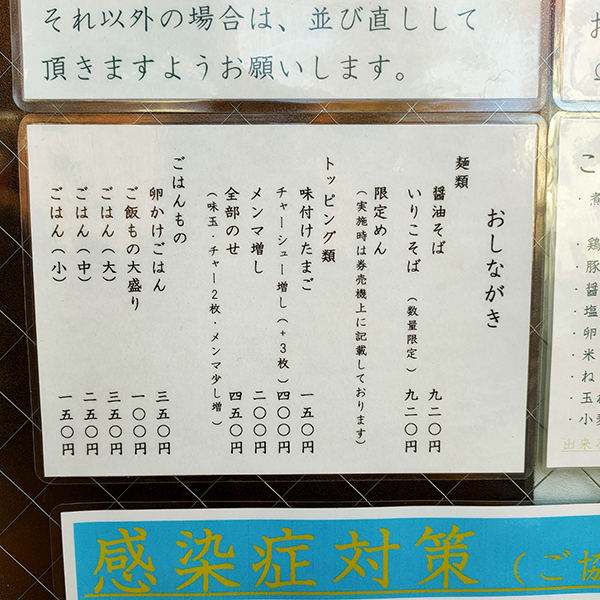 それ以外の場合は、並び直しして
頂きますようお願いします。
おしながき
麺類
醤油そば 九二〇円
いりこそば (数量限定) 九二〇円
限定めん
(実施時は券売機上に記載しております)
トッピング類
味付けたまご 一五〇円
チャーシュー増し(+3枚) 四〇〇円
メンマ増し 二〇〇円
全部のせ 四五〇円
(味玉・チャー2枚・メンマ少し増)
ごはんもの
卵かけごはん 三五〇円
ご飯もの大盛り 一〇〇円
ごはん(大) 三五〇円
ごはん(中) 二五〇円
ごはん(小) 一五〇円
こ
・煮
・鶏
・豚
・醤
・塩
・卵
・米
・ね
・玉ね
・小麦
出来
感染症対策 (ご協